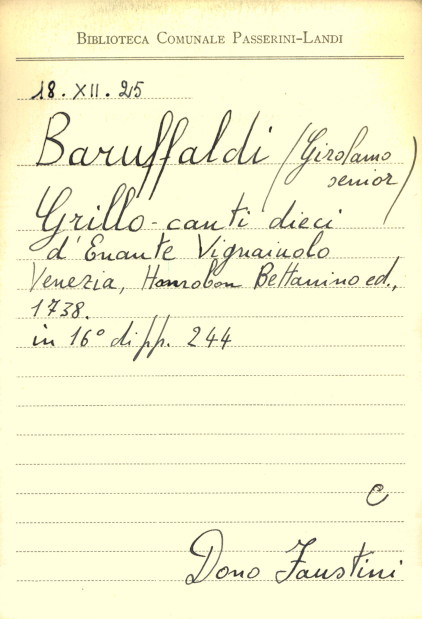 BIBLIOTECA COMUNALE PASSERINI-LANDI
18. XII. 25
Baruffaldi (Girolamo
senior)
Grillo - canti dieci
d'Enante Vignaiuolo
Venezia, Bettanino ed.,
1738.
in 16° di pp. 244
C
Dono Faustini